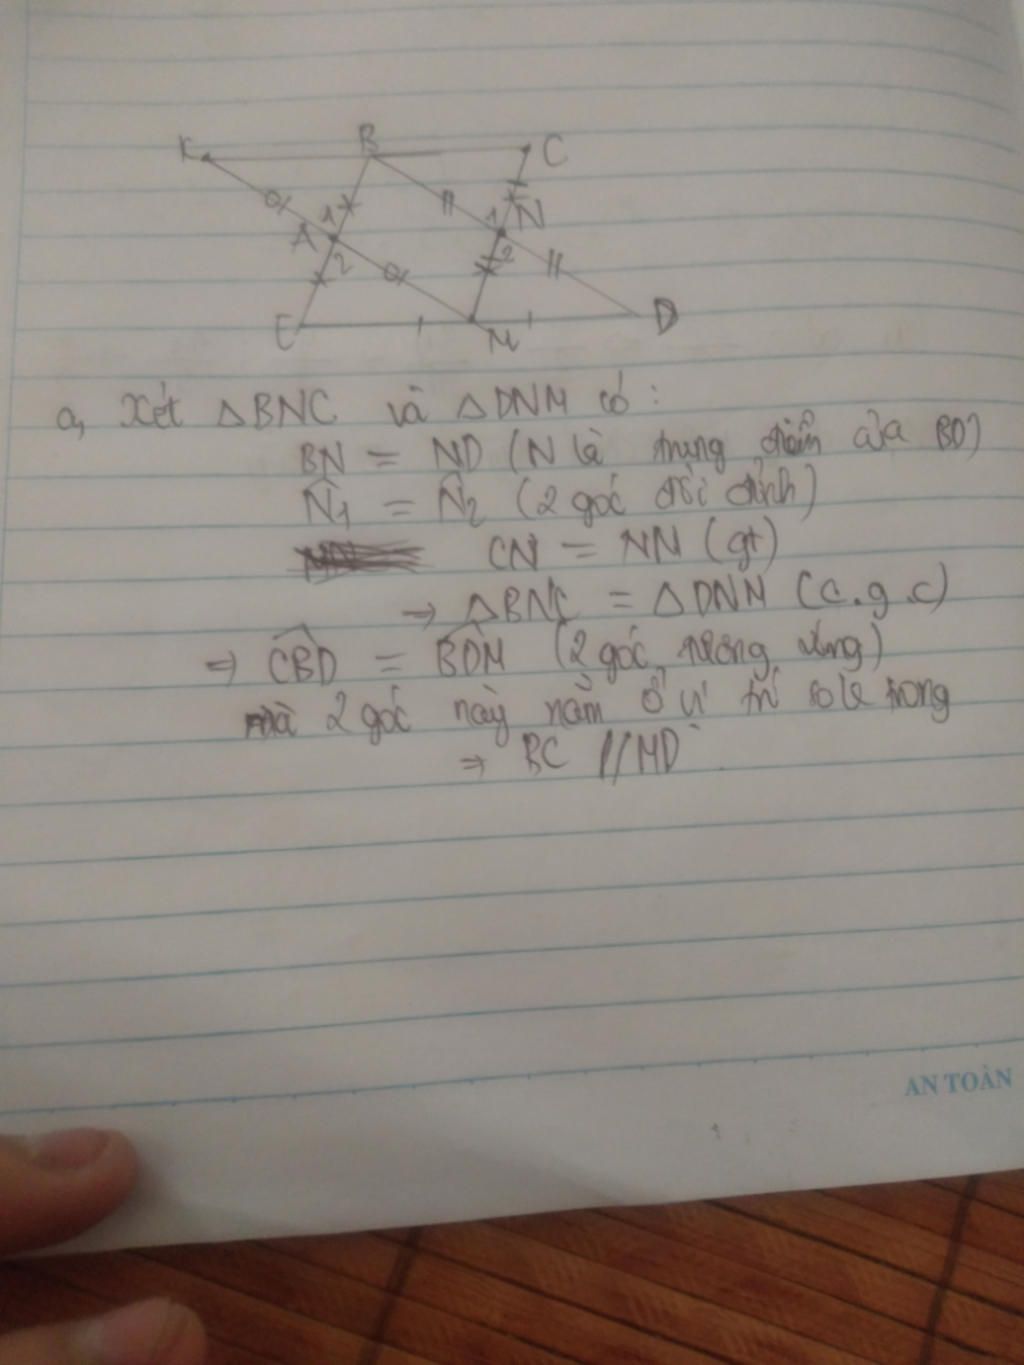 K B C
1 1 N
A 2 2
E M D
a, Xét △BNC và △DNM có :
BN = ND (N là trung điểm của BD)
N̂1 = N̂2 (2 góc đối đỉnh)
CN = NN (gt)
→ △BNC = △DNM (c.g.c)
⇒ CBD = BDM (2 góc tương ứng)
mà 2 góc này nằm ở vị trí so le trong
⇒ BC // MD
AN TOÀN